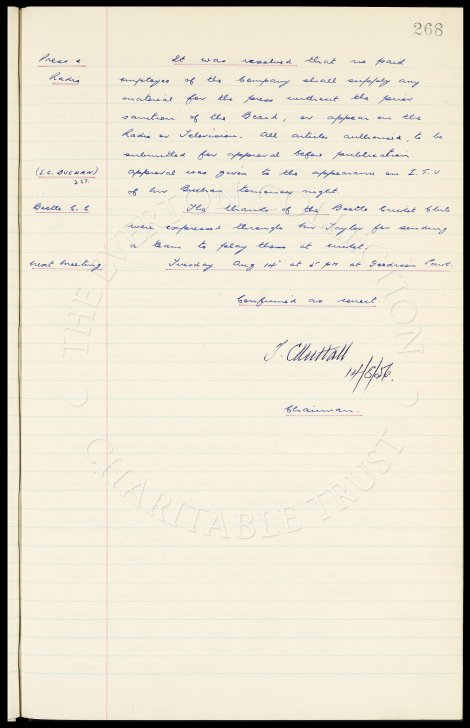 268
Press &
Radio
It was resolved that no paid
employee of the Company shall supply any
material for the press without the prior
sanction of the Board, or appear on the
Radio or Television. All articles authorised, to be
submitted for approval before publication.
(I.C. BUCHAN)
267.
approval was given to the appearance on I.T.V
of Mr Buchan tomorrow night.
Bootle C.C
The thanks of the Bootle Cricket Club
were expressed through Mr Taylor for sending
a team to play them at cricket.
next meeting
Tuesday Aug 14th at 5 pm at Goodison Park.
Confirmed as correct
T. C. Nuttall
14/8/56.
Chairman.
THE EVERTON COLLECTION
CHARITABLE TRUST